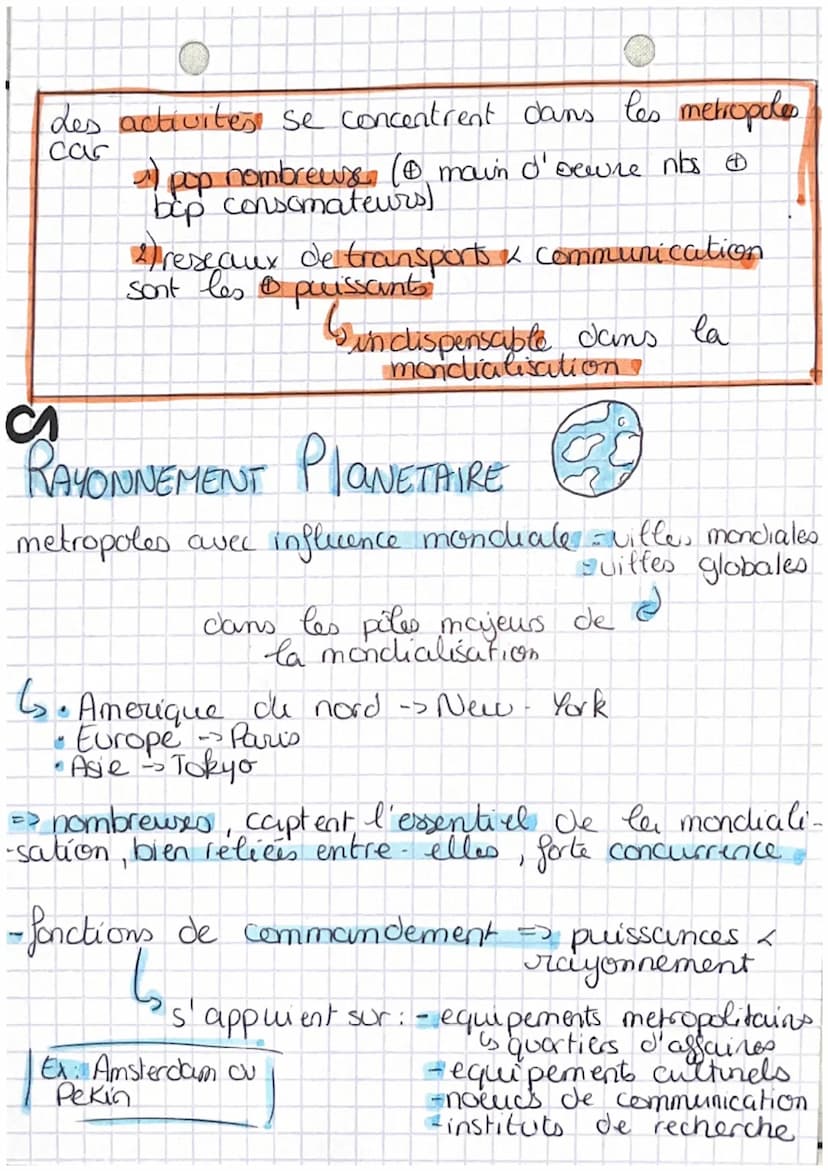 Les activités se concentrent dans les metropoles
car
1) pop nombreuse (⊕ main d'oeuvre nbs ⊕
bcp consomateurs)
2) reseaux de transports & communication
sont les ⊕ puissants
↳ indispensable dans la
mondialisation
RAYONNEMENT PlANETAIRE
metropoles avec influence mondiale - villes mondiales
- villes globales
dans les pôles majeurs de
la mondialisation
↳ • Amerique du nord -> New - York
• Europe -> Paris
• Asie -> Tokyo
=> nombreuses, captent l'essentiel de la mondiali-
-sation, bien reliées entre - elles, forte concurrence
- fonctions de commandement => puissances &
rayonnement
↳ s'appuient sur : - equipements metropolitains
↳ quartiers d'affaires
- equipements culturels
- noeuds de communication
- instituts de recherche
Ex : Amsterdam ou
Pekin